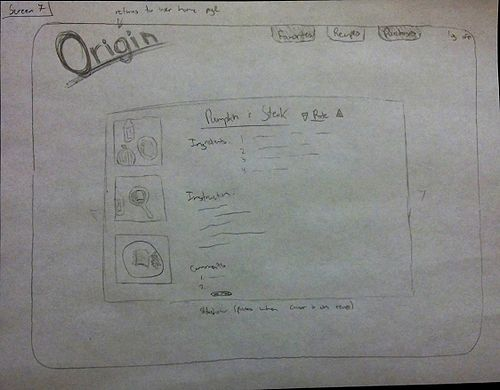 Screen 7
returns to user home page
Origin
Favorites Recipes Purchases log off
Pumpkin & Steak Rate
Ingredients 1
2
3
4
Instruction
Comments
1.
2.
Slideshow (pauses when cursor is on recipe)